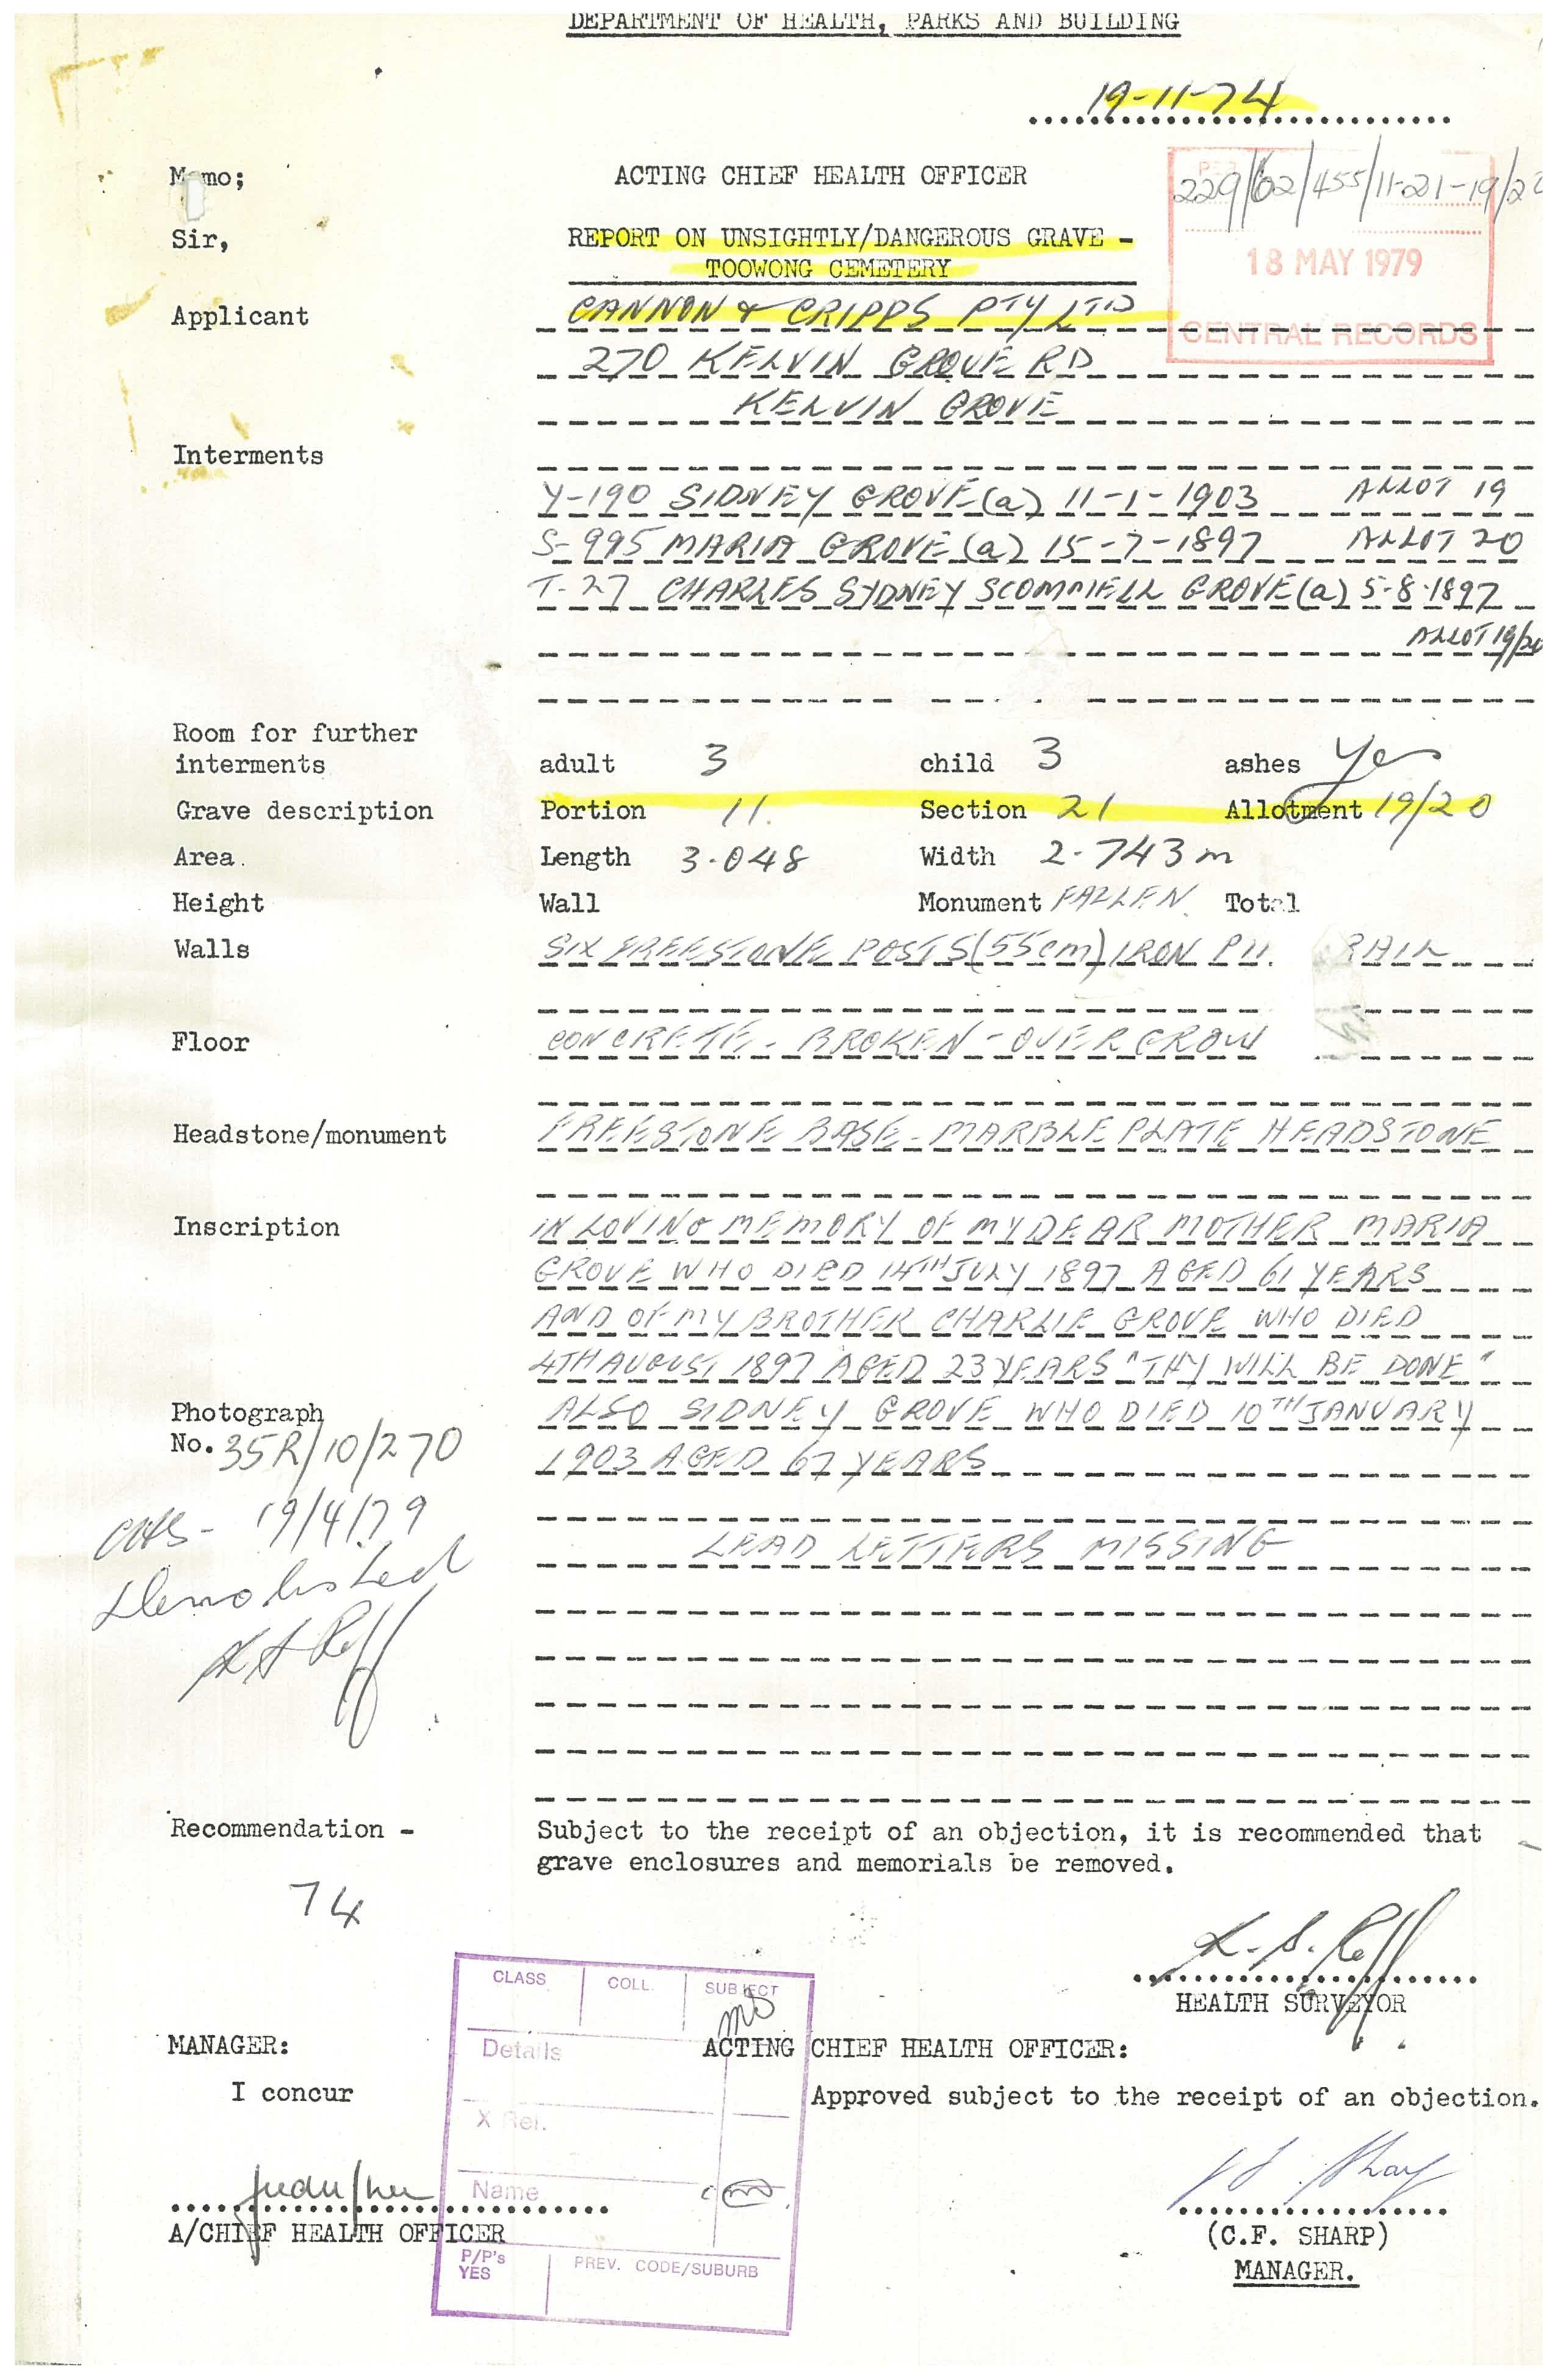 DEPARTMENT OF HEALTH, PARKS AND BUILDING
19-11-74
Memo; ACTING CHIEF HEALTH OFFICER
229/62/455/11-21-19/20
Sir, REPORT ON UNSIGHTLY/DANGEROUS GRAVE -
TOOWONG CEMETERY
18 MAY 1979
CENTRAL RECORDS
Applicant CANNON & CRIPPS PTY LTD
270 KELVIN GROVE RD
KELVIN GROVE
Interments
Y-190 SIDNEY GROVE (a) 11-1-1903 ALLOT 19
S-995 MARIA GROVE (a) 15-7-1897 ALLOT 20
T-27 CHARLES SYDNEY SCOMMELL GROVE (a) 5-8-1897
ALLOT 19/20
Room for further
interments adult 3 child 3 ashes Yes
Grave description Portion 11. Section 21 Allotment 19/20
Area. Length 3.048 Width 2.743m
Height Wall Monument FALLEN Total
Walls SIX FREESTONE POSTS (55cm) IRON RAIL
Floor CONCRETE - BROKEN - OVERGROW
Headstone/monument FREESTONE BASE - MARBLE PLATE HEADSTONE
Inscription IN LOVING MEMORY OF MY DEAR MOTHER MARIA
GROVE WHO DIED 14TH JULY 1897 AGED 61 YEARS
AND OF MY BROTHER CHARLIE GROVE WHO DIED
4TH AUGUST 1897 AGED 23 YEARS "THY WILL BE DONE"
Photograph ALSO SIDNEY GROVE WHO DIED 10TH JANUARY
No. 35R/10/270 1903 AGED 67 YEARS
19/4/79
LEAD LETTERS MISSING
Demolished
Recommendation - Subject to the receipt of an objection, it is recommended that
grave enclosures and memorials be removed.
74
HEALTH SURVEYOR
CLASS COLL. SUBJECT
MANAGER: Details ACTING CHIEF HEALTH OFFICER:
I concur Approved subject to the receipt of an objection.
X Ref.
Name
A/CHIEF HEALTH OFFICER (C.F. SHARP)
P/P's PREV. CODE/SUBURB
YES
MANAGER.